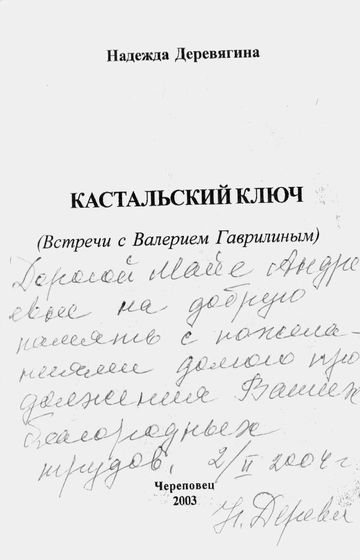 Надежда Деревягина
КАСТАЛЬСКИЙ КЛЮЧ
(Встречи с Валерием Гаврилиным)
Дорогой Майе Андре
евне на добрую
память с пожела-
ниями долгого про
должения Ваших
благородных
трудов. 2/II 2004 г.
Череповец
2003
Н. Дерева